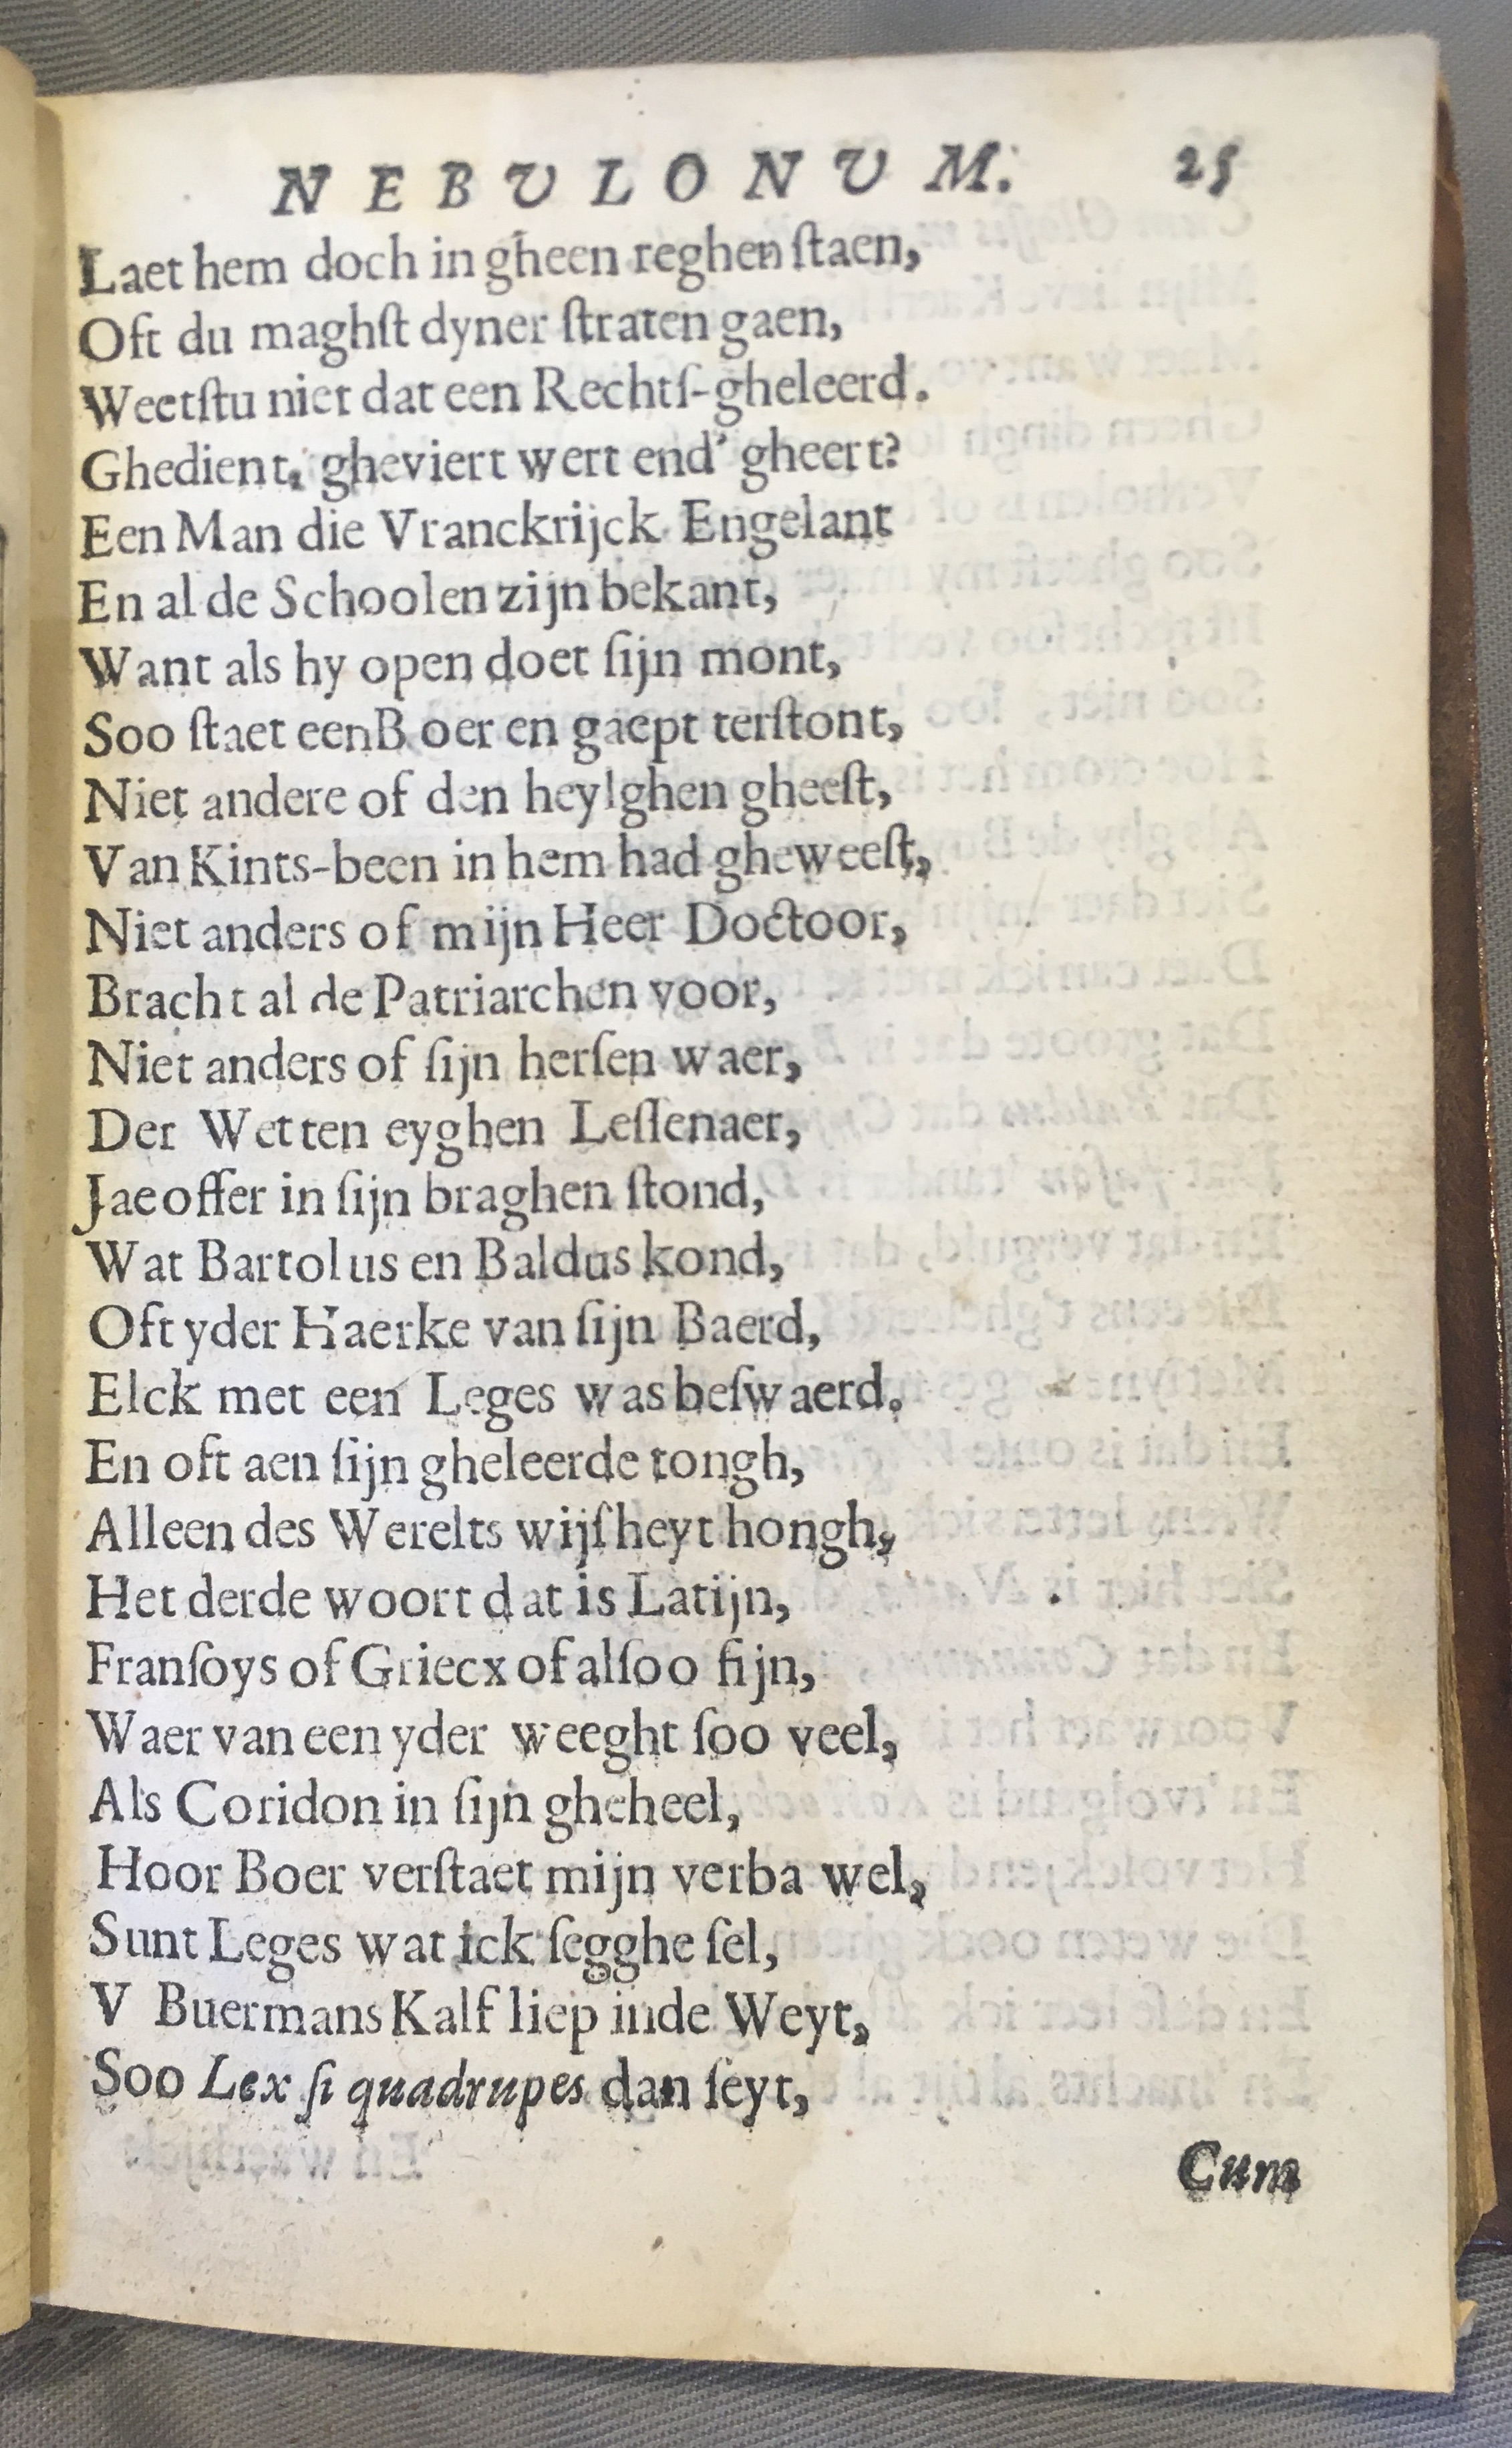 NEBULONUM. 25
Laet hem doch in gheen reghen ſtaen,
Oft du maghſt dyner ſtraten gaen,
Weetſtu niet dat een Rechtſ-gheleerd.
Ghedient, gheviert wert end' gheert?
Een Man die Vranckrijck Engelant
En al de Schoolen zijn bekant,
Want als hy open doet ſijn mont,
Soo ſtaet een Boer en gaept terſtont,
Niet andere of den heylghen gheeſt,
Van Kints-been in hem had gheweeſt,
Niet anders of mijn Heer Doctoor,
Bracht al de Patriarchen voor,
Niet anders of ſijn herſen waer,
Der Wetten eyghen Leſſenaer,
Jae offer in ſijn braghen ſtond,
Wat Bartolus en Baldus kond,
Oft yder Haerke van ſijn Baerd,
Elck met een Leges was beſwaerd.
En oft aen ſijn gheleerde tongh,
Alleen des Werelts wijſheyt hongh,
Het derde woort dat is Latijn,
Franſoys of Griecx of alſoo fijn,
Waer van een yder weeght ſoo veel,
Als Coridon in ſijn gheheel,
Hoor Boer verſtaet mijn verba wel,
Sunt Leges wat ick ſegghe ſel,
V Buermans Kalf liep inde Weyt,
Soo Lex ſi quadrupes dan ſeyt,
Cum